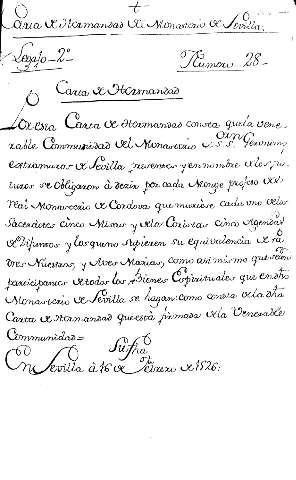 Carta de Hermandad de Monasterio de Sevilla.
Legajo-2º
Numero 28-
Carta de Hermandad
Por esta Carta de Hermandad consta que la vene-
rable Communidad del Monasterio de S. Geronimo
extramuros de Sevilla presentes y en nombre de los fu-
turos se obligaron á decir por cada Monge profeso del
Real Monasterio de Cordova que muriese cada uno de los
Sacerdotes cinco Misas y los Coristas cinco Agendas
de Difuntos y los que no supieren su equivalencia de Pa-
dres Nuestros, y Aves Marias, como asi mismo que sean
participantes de todos los Bienes Espirituales que en dho
Monasterio de Sevilla se hagan: como consta de la dha
Carta de Hermandad que está firmada de la Venerable
Communidad=
En Sevilla á 16 de Febrero de 1526.